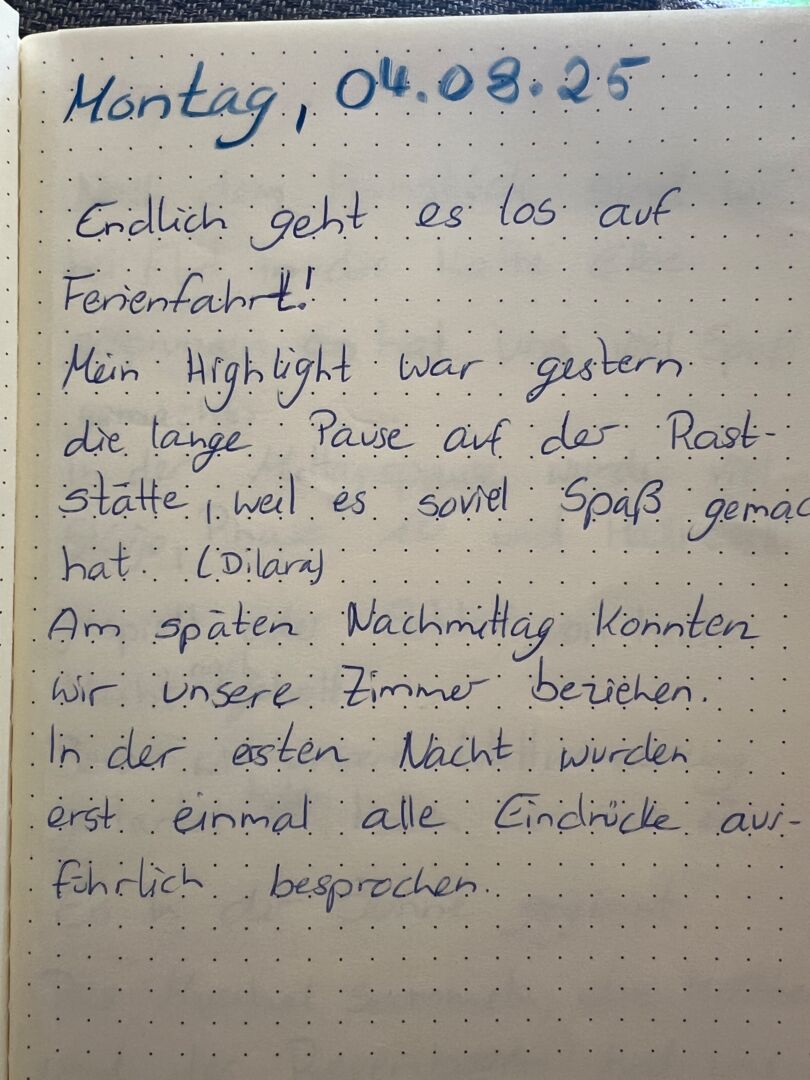 Montag, 04.08.25
Endlich geht es los auf
Ferienfahrt!
Mein Highlight war gestern
die lange Pause auf der Rast-
stätte, weil es soviel Spaß gemac
hat. (Dilara)
Am späten Nachmittag konnten
wir unsere Zimmer beziehen.
In der ersten Nacht wurden
erst einmal alle Eindrücke aus-
führlich besprochen.